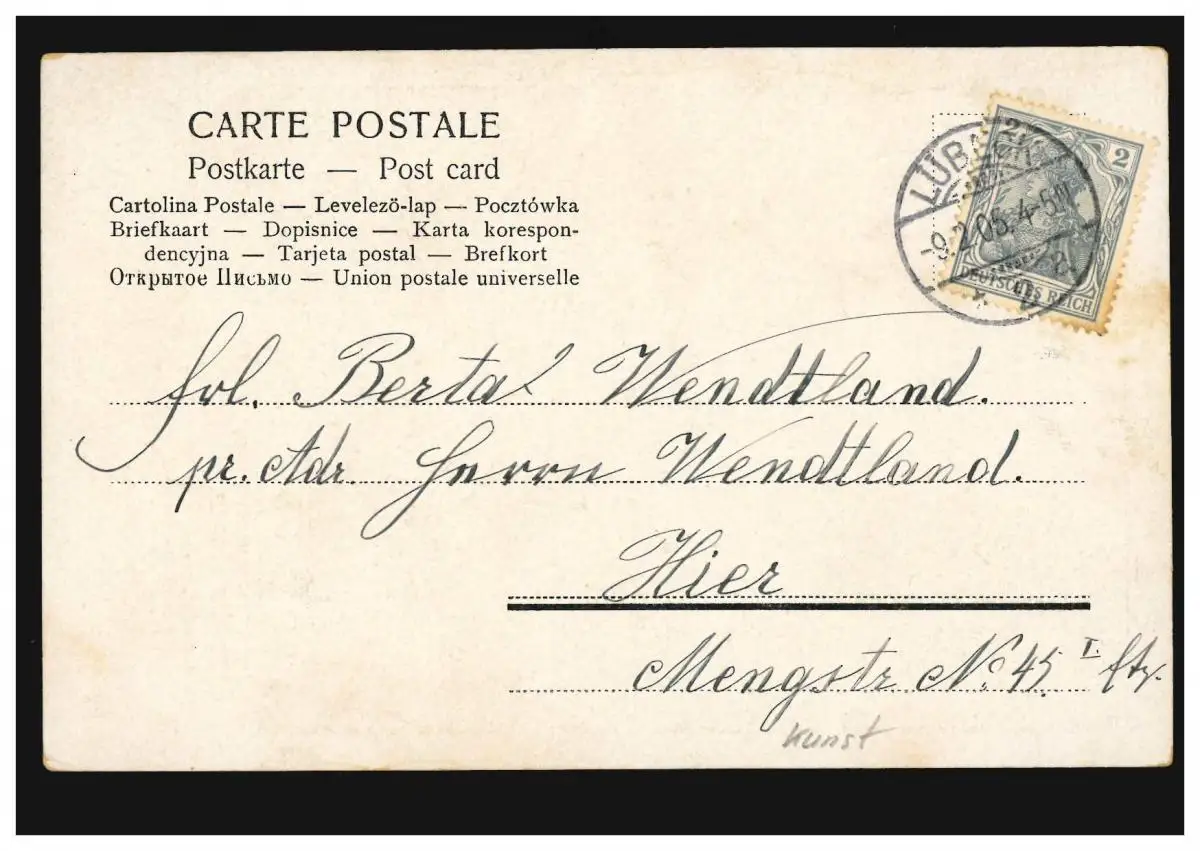 CARTE POSTALE
Postkarte — Post card
Cartolina Postale — Levelezö-lap — Pocztówka
Briefkaart — Dopisnice — Karta korespon-
dencyjna — Tarjeta postal — Brefkort
Открытое Письмо — Union postale universelle
2 2
DEUTSCHES REICH
LÜBECK
-9.2.05. 4-5N
Frl. Berta Wendtland.
pr. Adr. Herrn Wendtland.
Hier
Mengstr. No. 45 I.
Kunst